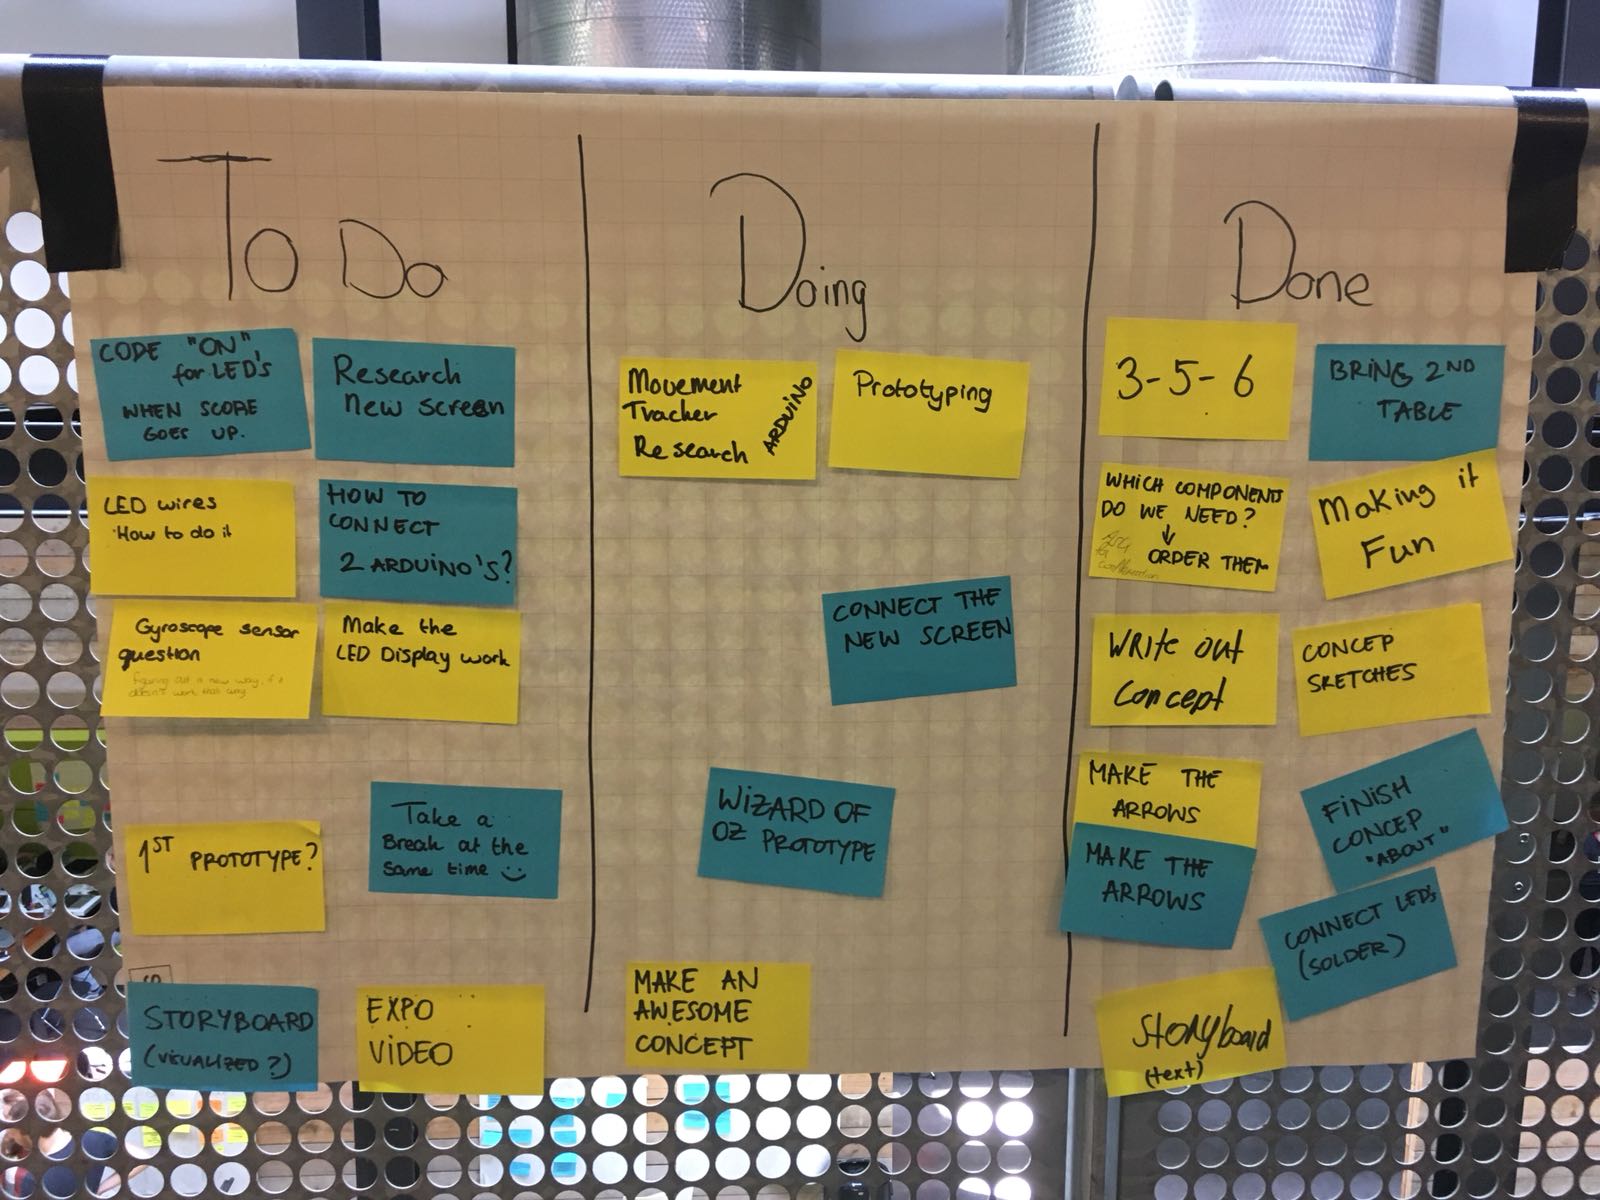 To Do
CODE "ON"
for LED'S
WHEN SCORE
GOES UP.
Research
New screen
LED wires
How to do it
HOW TO
CONNECT
2 ARDUINO'S?
Gyroscope sensor
question
figuring out a new way, if it
doesn't work that way
Make the
LED Display work
1ST PROTOTYPE?
Take a
Break at the
same time
STORYBOARD
(VISUALIZED?)
EXPO
VIDEO
Doing
Movement
Tracker
Research
ARDUINO
Prototyping
CONNECT THE
NEW SCREEN
WIZARD OF
OZ PROTOTYPE
MAKE AN
AWESOME
CONCEPT
Done
3-5-6
BRING 2ND
TABLE
WHICH COMPONENTS
DO WE NEED?
↓
ORDER THEM
Making it
Fun
Write out
Concept
CONCEP
SKETCHES
MAKE THE
ARROWS
MAKE THE
ARROWS
FINISH
CONCEP
"ABOUT"
CONNECT LED's
(SOLDER)
Storyboard
(text)